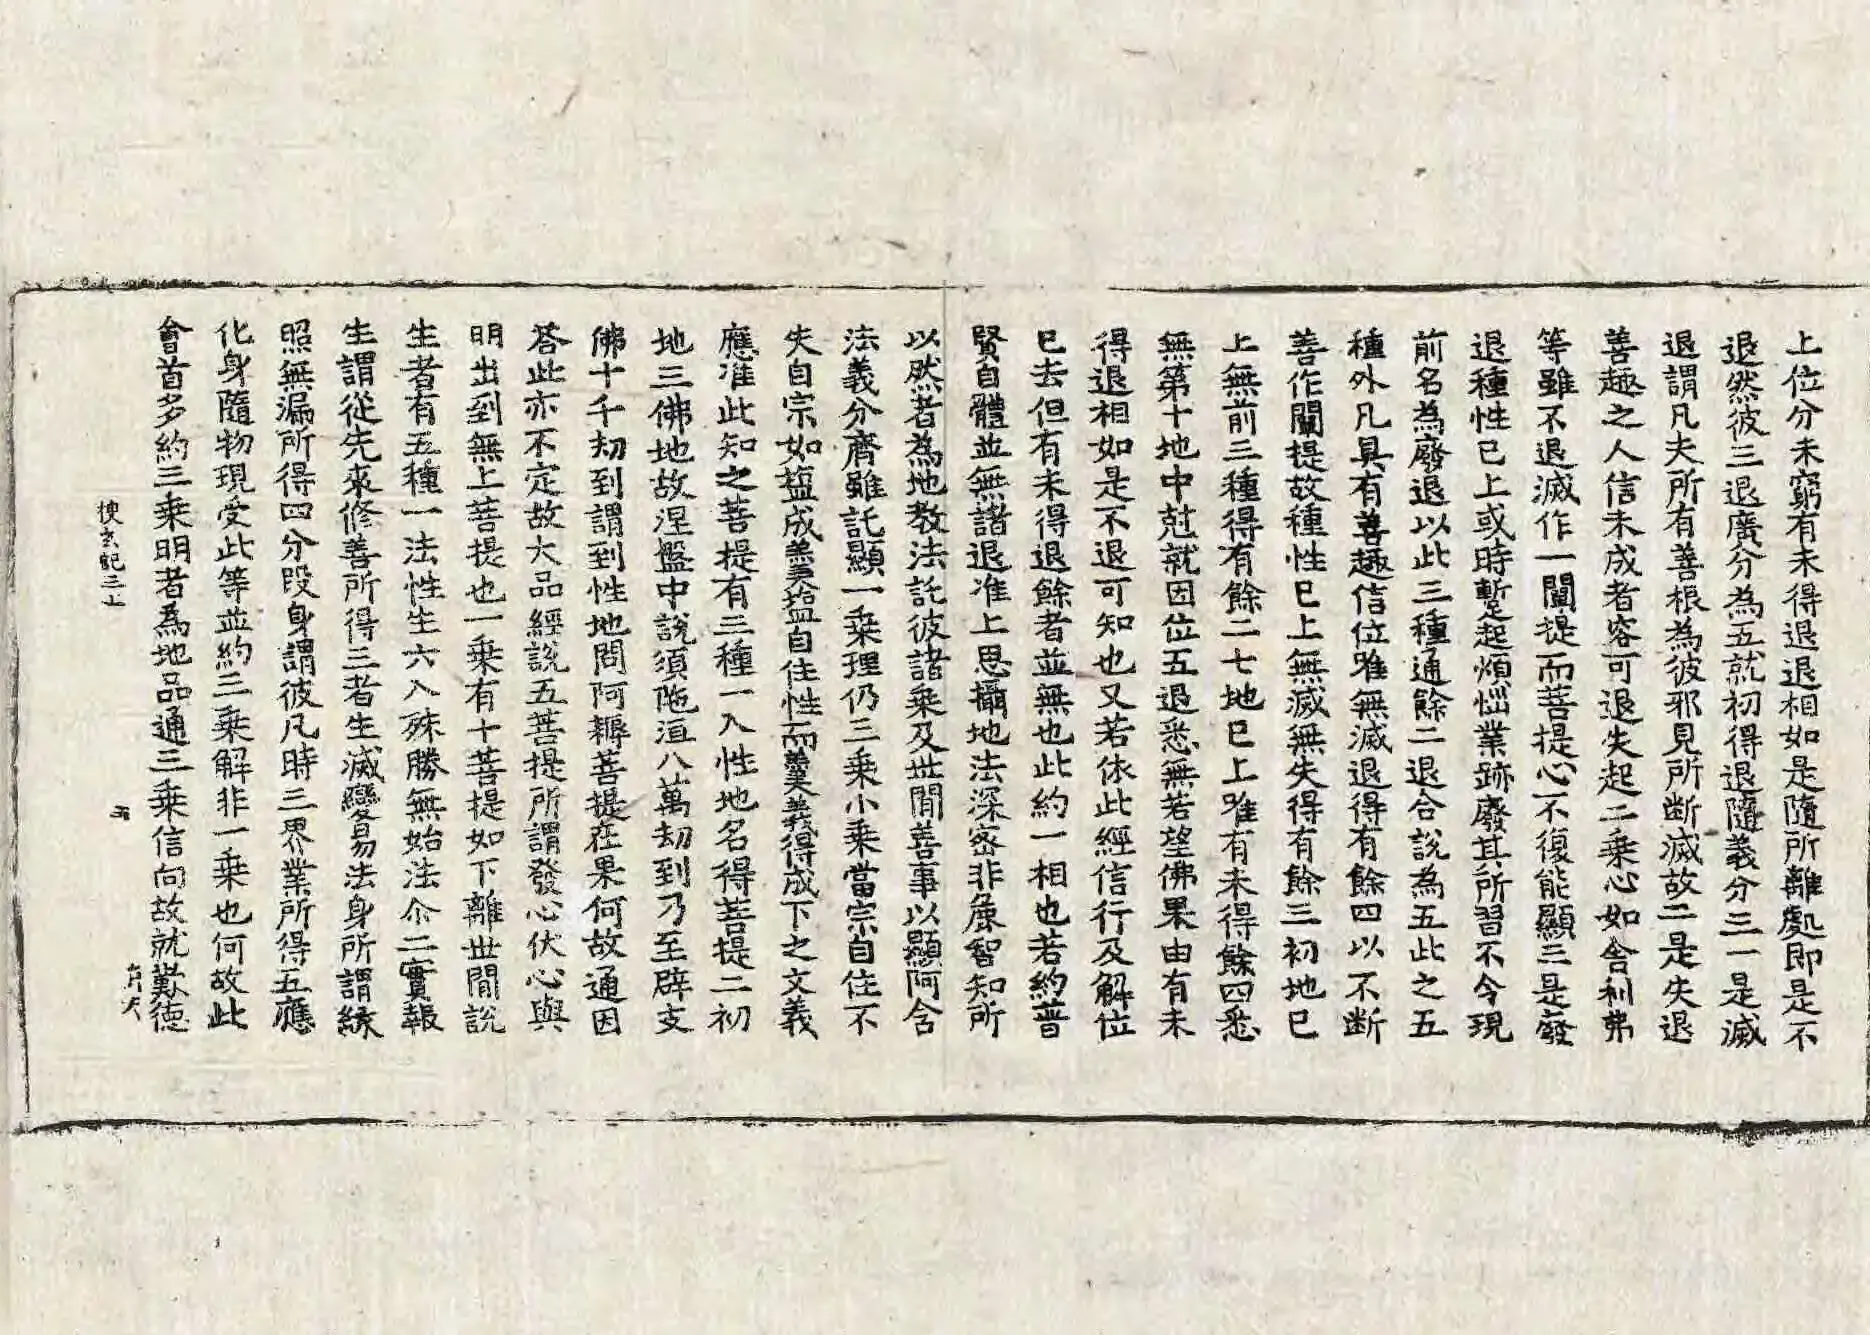 上位分未窮有未得退退相如是隨所離處即是不
退然彼三退廣分為五就初得退隨義分三一是滅
退謂凡夫所有善根為彼邪見所斷滅故二是失退
善趣之人信未成者容可退失起二乘心如舍利弗
等雖不退滅作一闡提而菩提心不復能顯三是廢
退種性已上或時暫起煩惱業跡廢其所習不令現
前名為廢退以此三種通餘二退合說為五此之五
種外凡具有善趣信位唯無滅退得有餘四以不斷
善作闡提故種性已上無滅無失得有餘三初地已
上無前三種得有餘二七地已上唯有未得餘四悉
無第十地中剋就因位五退悉無若望佛果由有未
得退相如是不退可知也又若依此經信行及解位
已去但有未得退餘者並無也此約一相也若約普
賢自體並無諸退准上思攝地法深密非麁智知所
以然者為地教法託彼諸乘及世間善事以顯阿含
法義分齊雖託顯一乘理仍三乘小乘當宗自住不
失自宗如塩成羹塩自住性而羹義得成下之文義
應准此知之菩提有三種一入性地名得菩提二初
地三佛地故涅盤中說須陁洹八萬劫到乃至辟支
佛十千劫到謂到性地問阿耨菩提在果何故通因
荅此亦不定故大品經說五菩提所謂發心伏心與
明出到無上菩提也一乘有十菩提如下離世間說
生者有五種一法性生六入殊勝無始法尒二實報
生謂從先來修善所得三者生滅變易法身所謂緣
照無漏所得四分段身謂彼凡時三界業所得五應
化身隨物現受此等並約三乘解非一乘也何故此
會首多約三乘明者為地品通三乘信向故就歎德